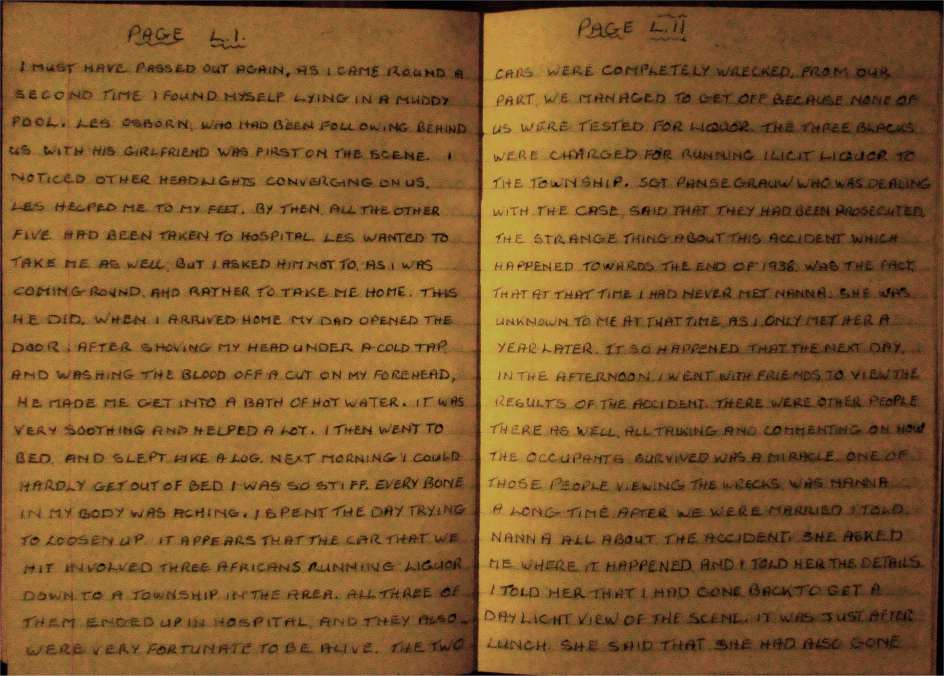 PAGE L.I.
I MUST HAVE PASSED OUT AGAIN, AS I CAME ROUND A
SECOND TIME I FOUND MYSELF LYING IN A MUDDY
POOL. LES OSBORN, WHO HAD BEEN FOLLOWING BEHIND
US WITH HIS GIRLFRIEND WAS FIRST ON THE SCENE. I
NOTICED OTHER HEADLIGHTS CONVERGING ON US.
LES HELPED ME TO MY FEET. BY THEN ALL THE OTHER
FIVE HAD BEEN TAKEN TO HOSPITAL. LES WANTED TO
TAKE ME AS WELL, BUT I ASKED HIM NOT TO, AS I WAS
COMING ROUND, AND RATHER TO TAKE ME HOME. THIS
HE DID. WHEN I ARRIVED HOME MY DAD OPENED THE
DOOR; AFTER SHOVING MY HEAD UNDER A COLD TAP
AND WASHING THE BLOOD OFF A CUT ON MY FOREHEAD,
HE MADE ME GET INTO A BATH OF HOT WATER. IT WAS
VERY SOOTHING AND HELPED A LOT. I THEN WENT TO
BED, AND SLEPT LIKE A LOG. NEXT MORNING I COULD
HARDLY GET OUT OF BED I WAS SO STIFF. EVERY BONE
IN MY BODY WAS ACHING. I SPENT THE DAY TRYING
TO LOOSEN UP. IT APPEARS THAT THE CAR THAT WE
HIT INVOLVED THREE AFRICANS RUNNING LIQUOR
DOWN TO A TOWNSHIP IN THE AREA. ALL THREE OF
THEM ENDED UP IN HOSPITAL, AND THEY ALSO
WERE VERY FORTUNATE TO BE ALIVE. THE TWO
PAGE L.II
CARS WERE COMPLETELY WRECKED, FROM OUR
PART, WE MANAGED TO GET OFF BECAUSE NONE OF
US WERE TESTED FOR LIQUOR. THE THREE BLACKS
WERE CHARGED FOR RUNNING ILICIT LIQUOR TO
THE TOWNSHIP. SGT PANSEGRAUW WHO WAS DEALING
WITH THE CASE, SAID THAT THEY HAD BEEN PROSECUTED.
THE STRANGE THING ABOUT THIS ACCIDENT WHICH
HAPPENED TOWARDS THE END OF 1938, WAS THE FACT,
THAT AT THAT TIME I HAD NEVER MET NANNA. SHE WAS
UNKNOWN TO ME AT THAT TIME, AS I ONLY MET HER A
YEAR LATER. IT SO HAPPENED THAT THE NEXT DAY,
IN THE AFTERNOON I WENT WITH FRIENDS TO VIEW THE
RESULTS OF THE ACCIDENT. THERE WERE OTHER PEOPLE
THERE AS WELL, ALL TALKING AND COMMENTING ON HOW
THE OCCUPANTS SURVIVED WAS A MIRACLE. ONE OF
THOSE PEOPLE VIEWING THE WRECKS WAS NANNA
A LONG TIME AFTER WE WERE MARRIED I TOLD
NANNA ALL ABOUT THE ACCIDENT. SHE ASKED
ME WHERE IT HAPPENED AND I TOLD HER THE DETAILS.
I TOLD HER THAT I HAD GONE BACK TO GET A
DAYLIGHT VIEW OF THE SCENE. IT WAS JUST AFTER
LUNCH. SHE SAID THAT SHE HAD ALSO GONE